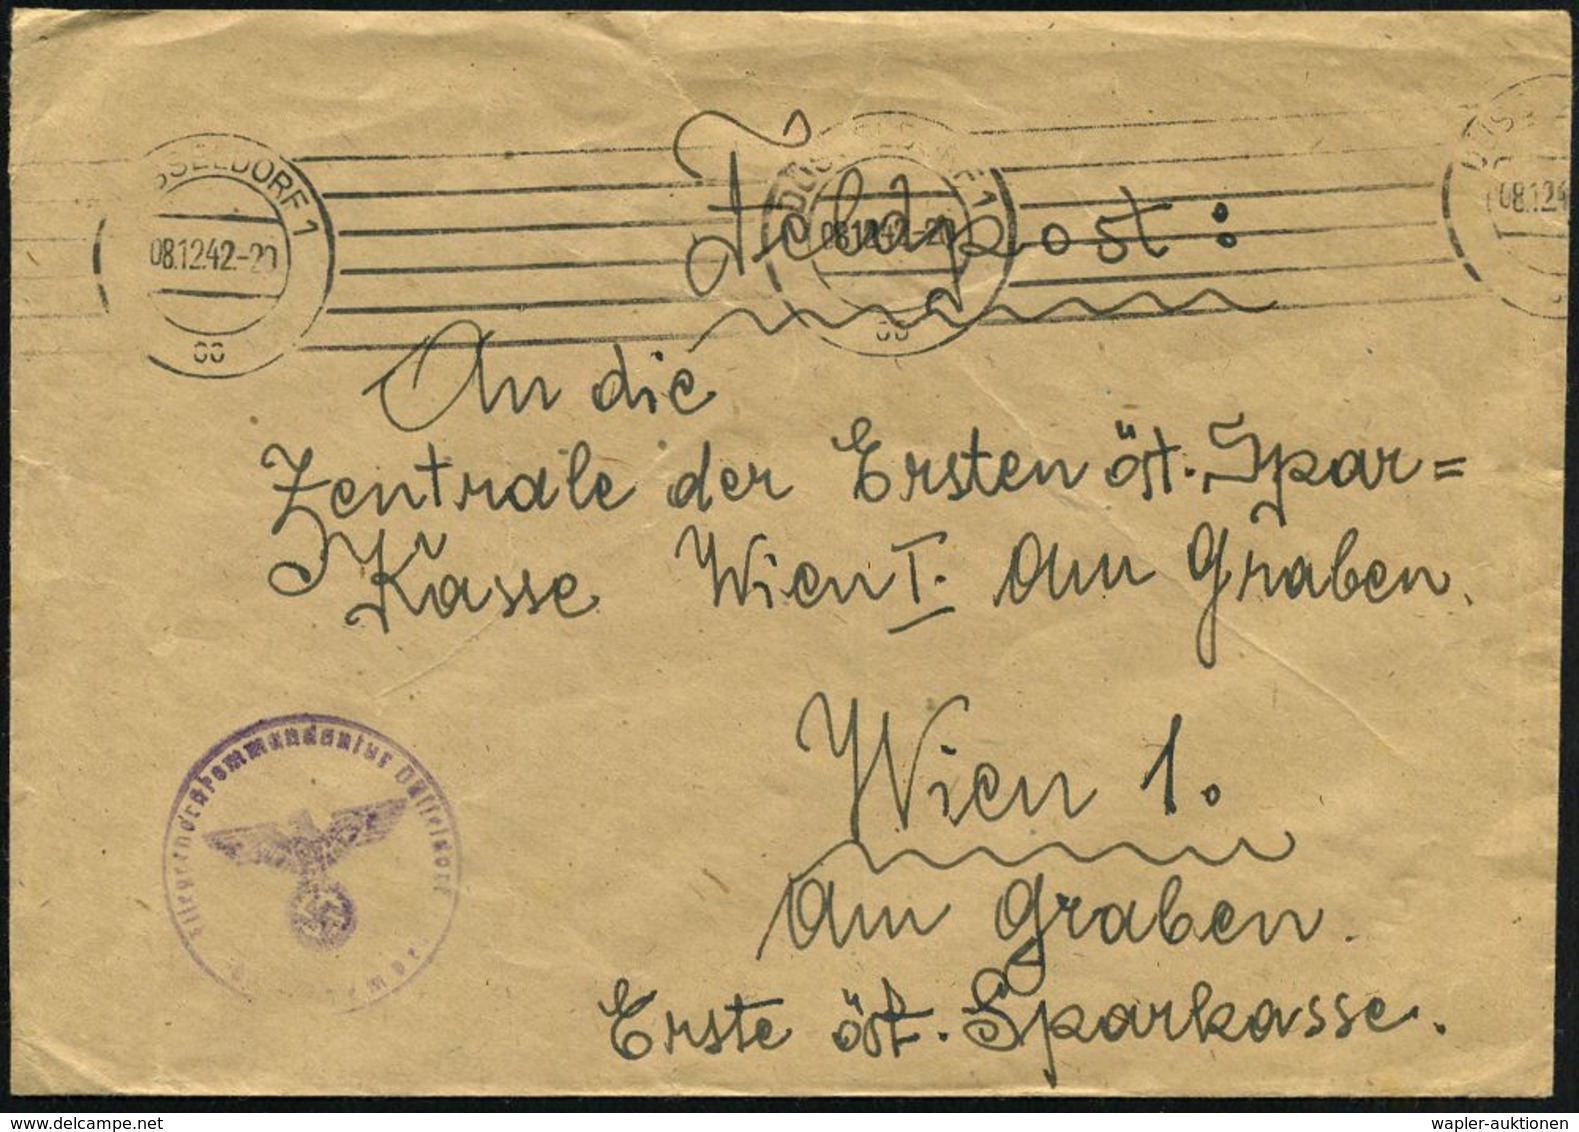 SSELDORF 1
08.12.42.-20
DÜSSELDORF 1
08.12.42.-20
08.12.4
Feldpost:
An die
Zentrale der Ersten öst. Spar=
Kasse Wien I. Am Graben.
Wien 1.
Am Graben.
Erste öst. Sparkasse.
Fliegerhorstkommandantur Düsseldorf
wapler-auktionen